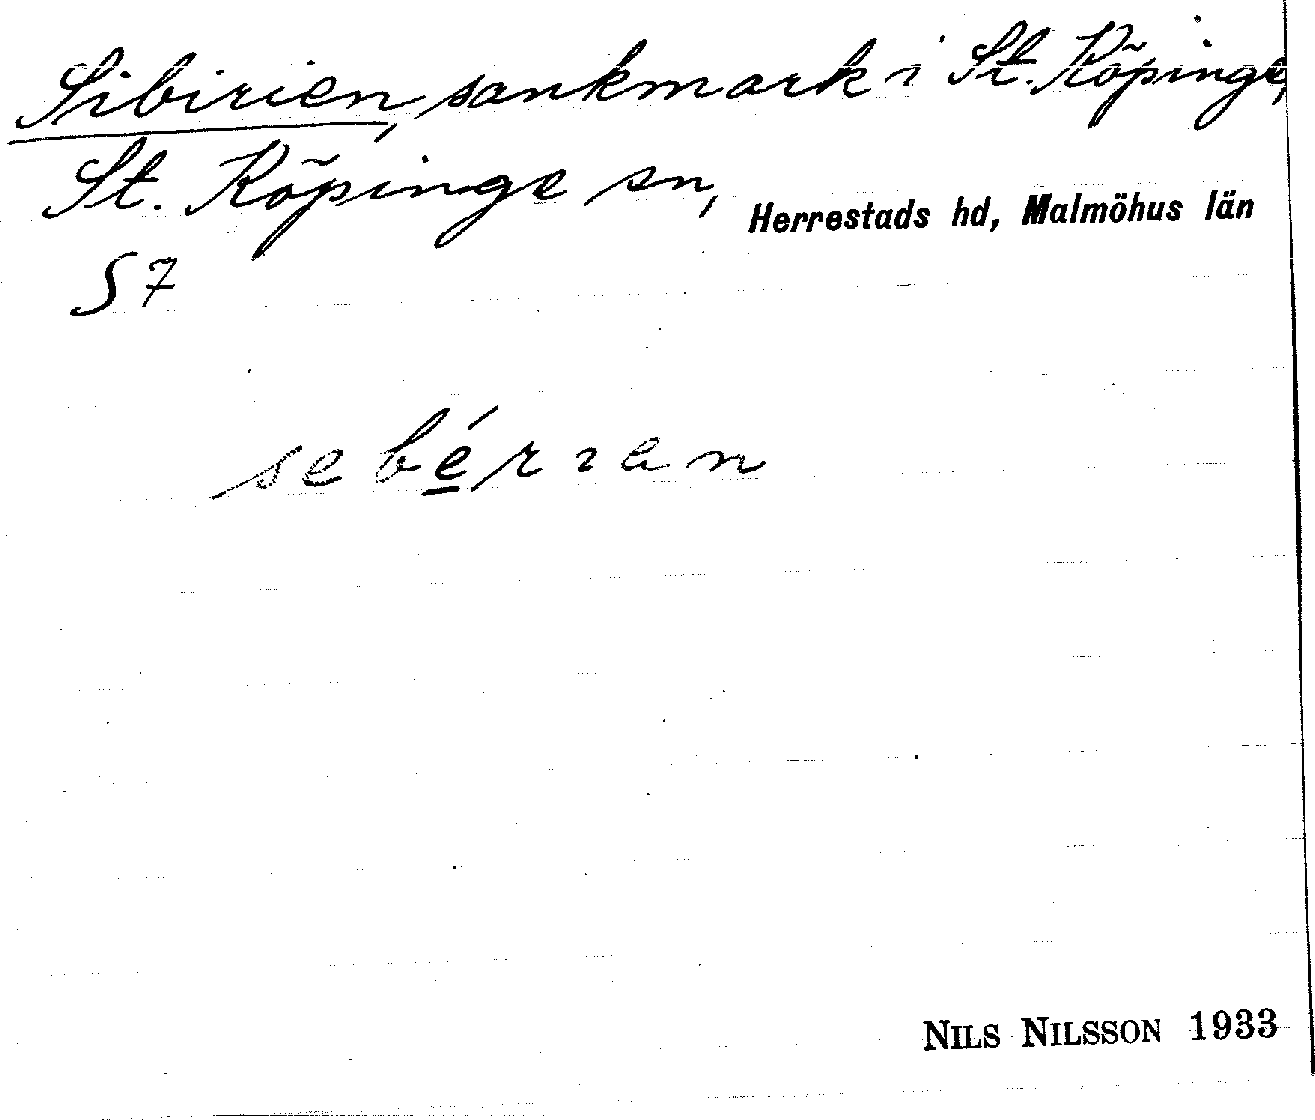 Sibirien, sankmark i St. Köpinge,
St. Köpinge sn, Herrestads hd, Malmöhus län
S 7
sebérɪan
NILS NILSSON 1933